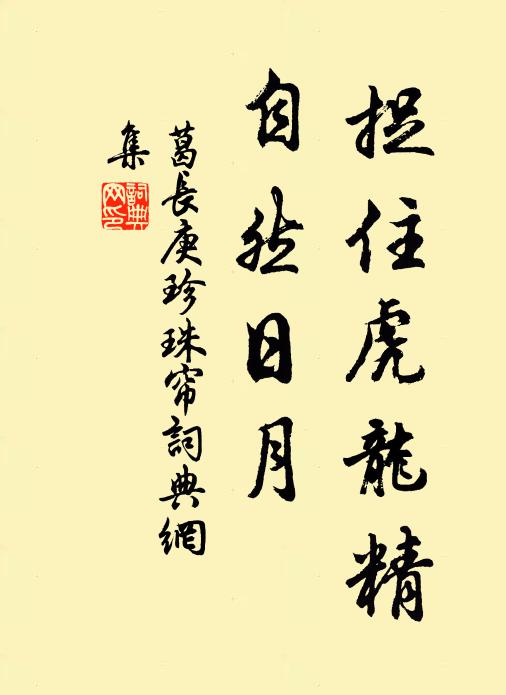 捉住虎龍精
自然日月
葛長庚珍珠帘詞典網
集
詞典
网印